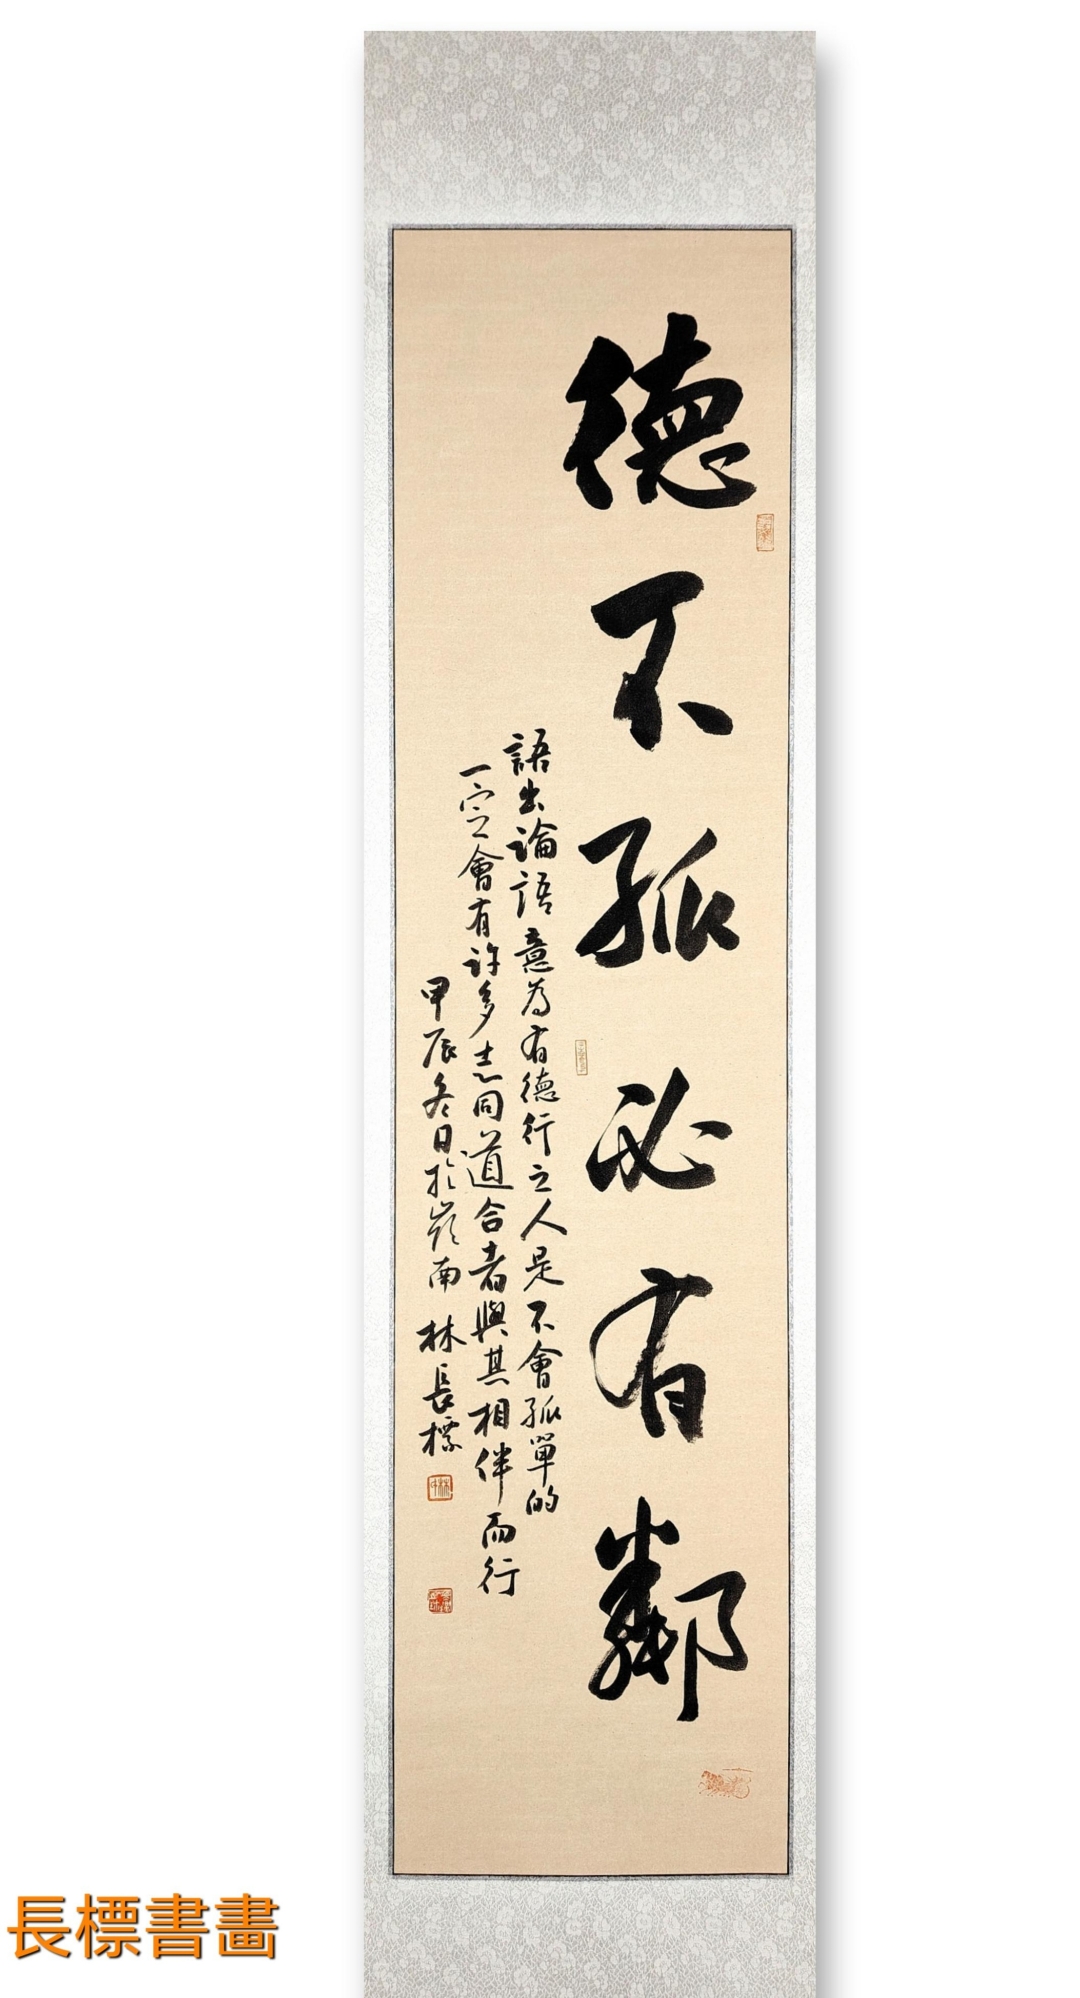 德不孤必有鄰
語出論語意為有德行之人是不會孤單的
一定會有許多志同道合者與其相伴而行
甲辰冬日於嶺南 林長標
長標書畫